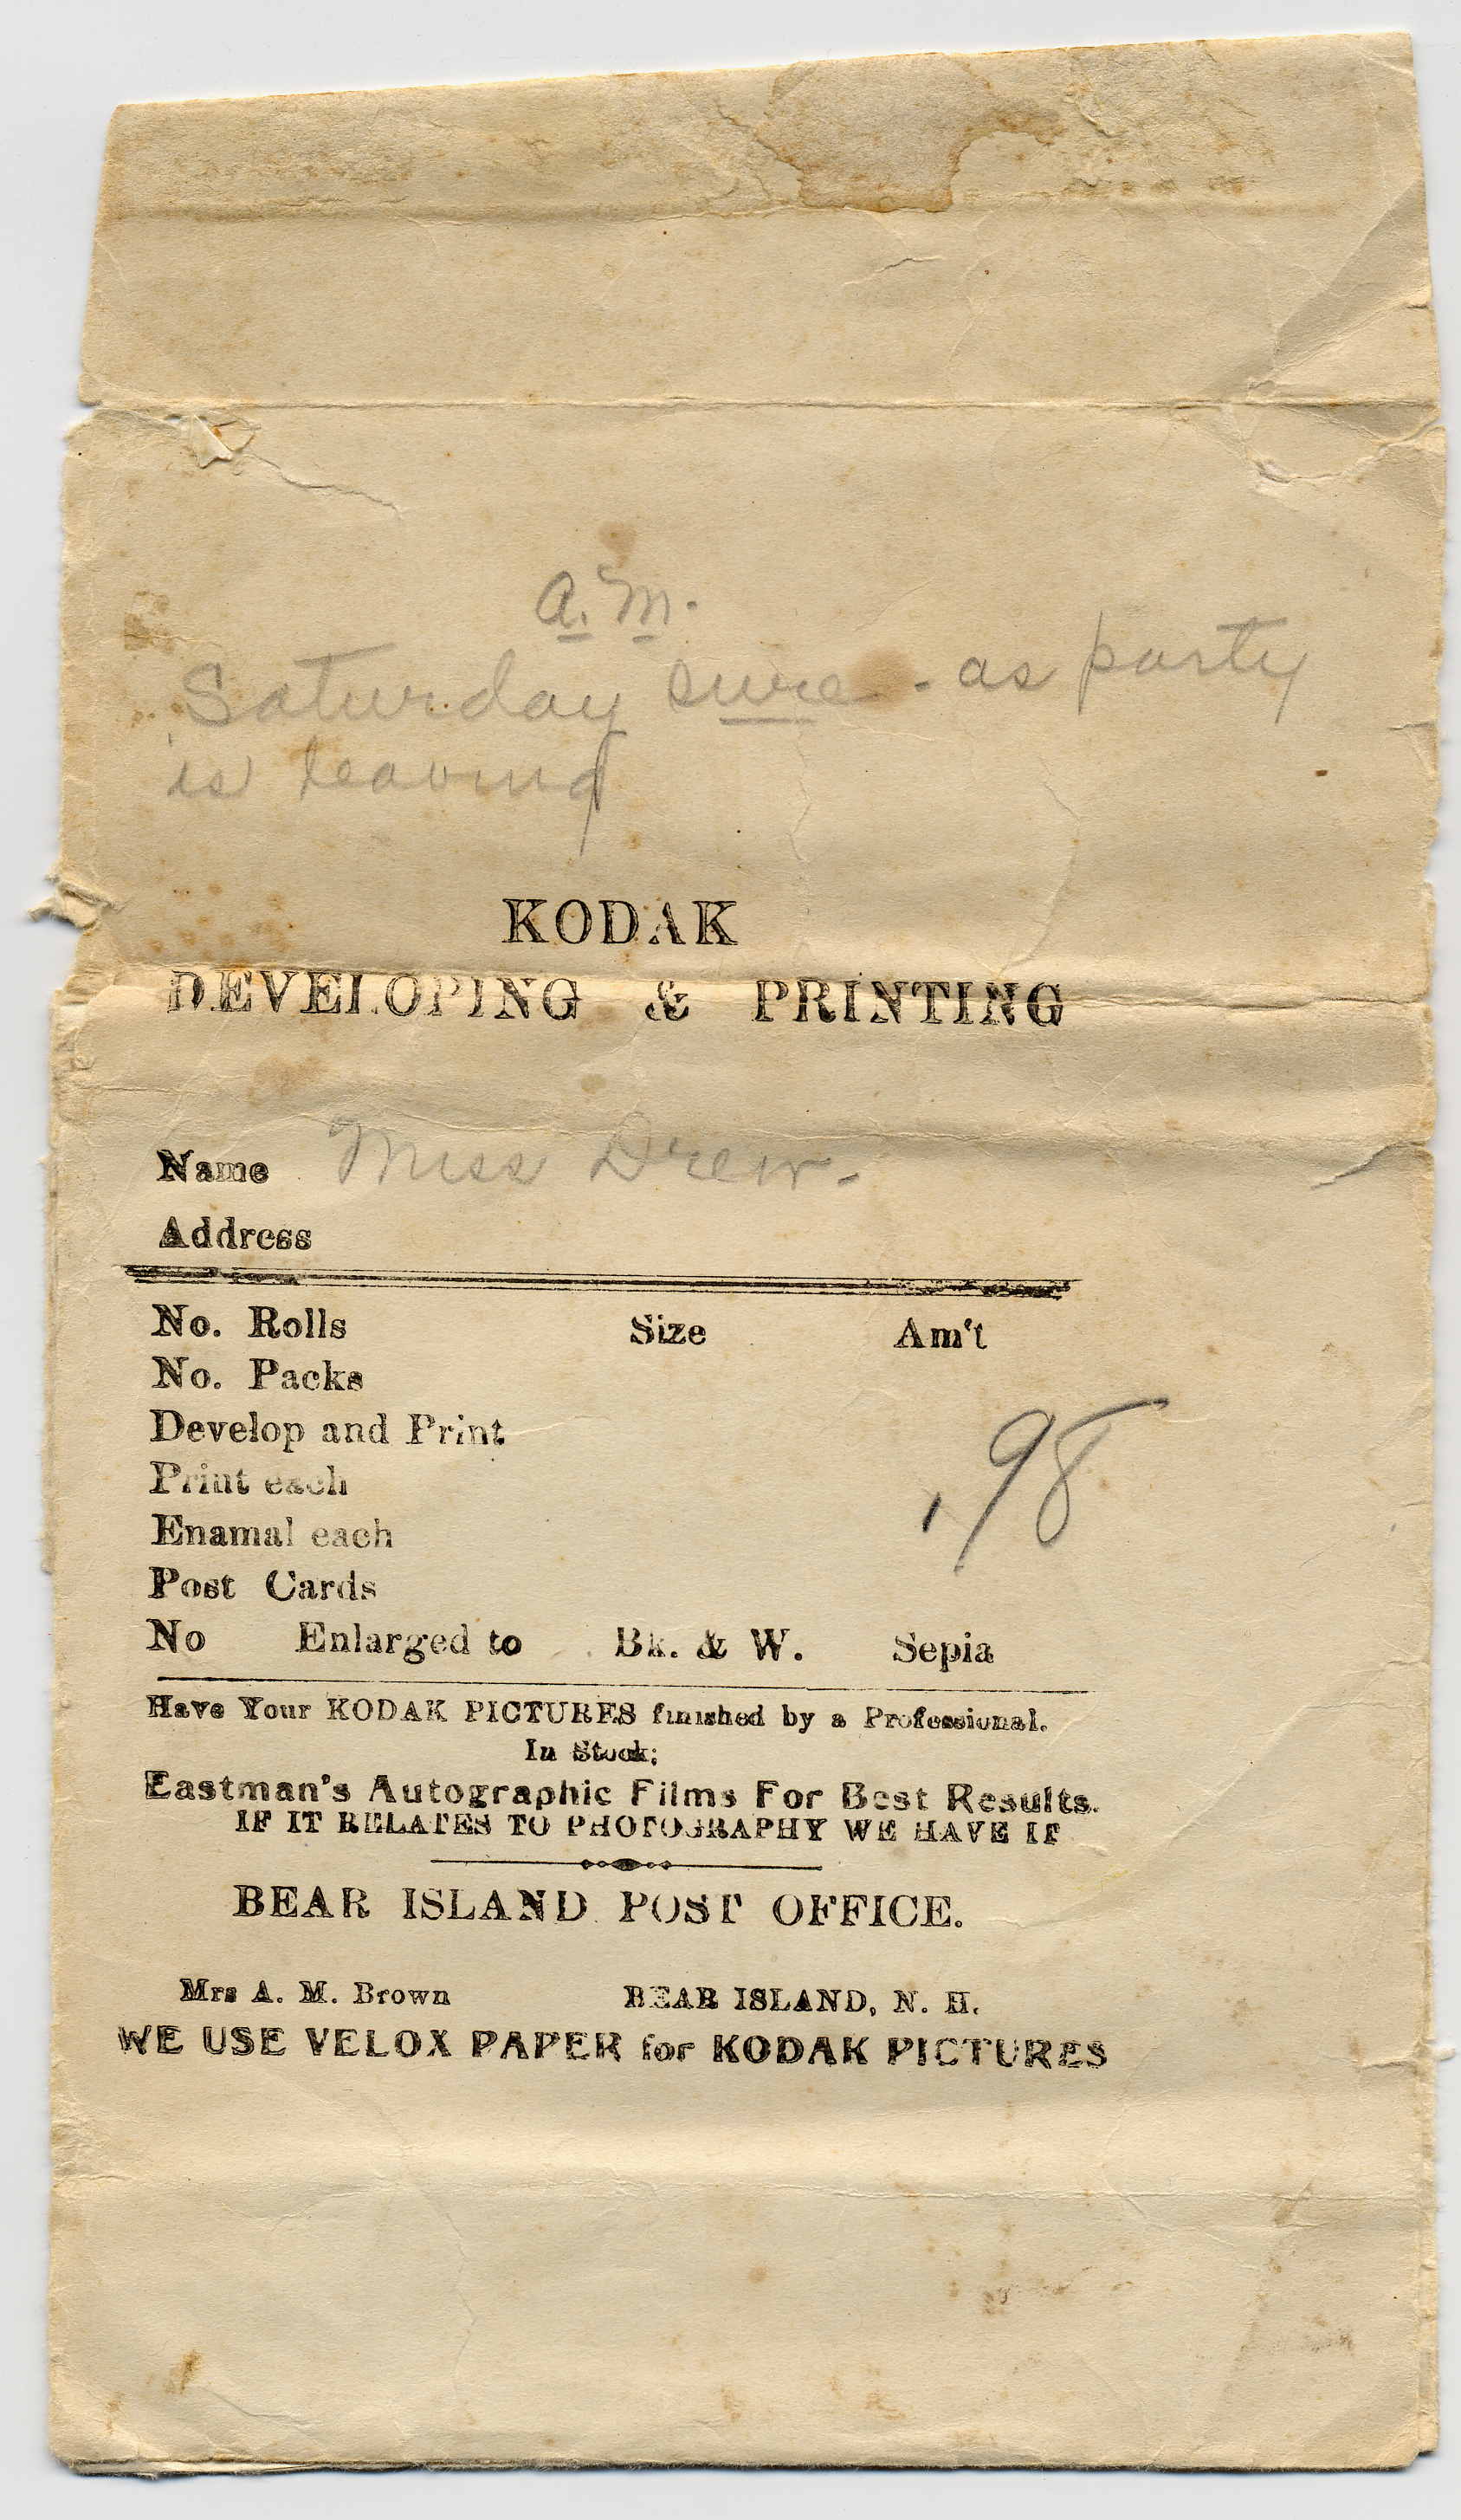 a.m.
Saturday sure - as party
is leaving
KODAK
DEVELOPING & PRINTING
Name Miss Drew -
Address
No. Rolls Size Am't
No. Packs
Develop and Print
Print each
Enamal each
.98
Post Cards
No Enlarged to Bk. & W. Sepia
Have Your KODAK PICTURES finished by a Professional.
In Stock;
Eastman's Autographic Films For Best Results.
IF IT RELATES TO PHOTOGRAPHY WE HAVE IT
BEAR ISLAND POST OFFICE.
Mrs A. M. Brown BEAR ISLAND, N. H.
WE USE VELOX PAPER for KODAK PICTURES